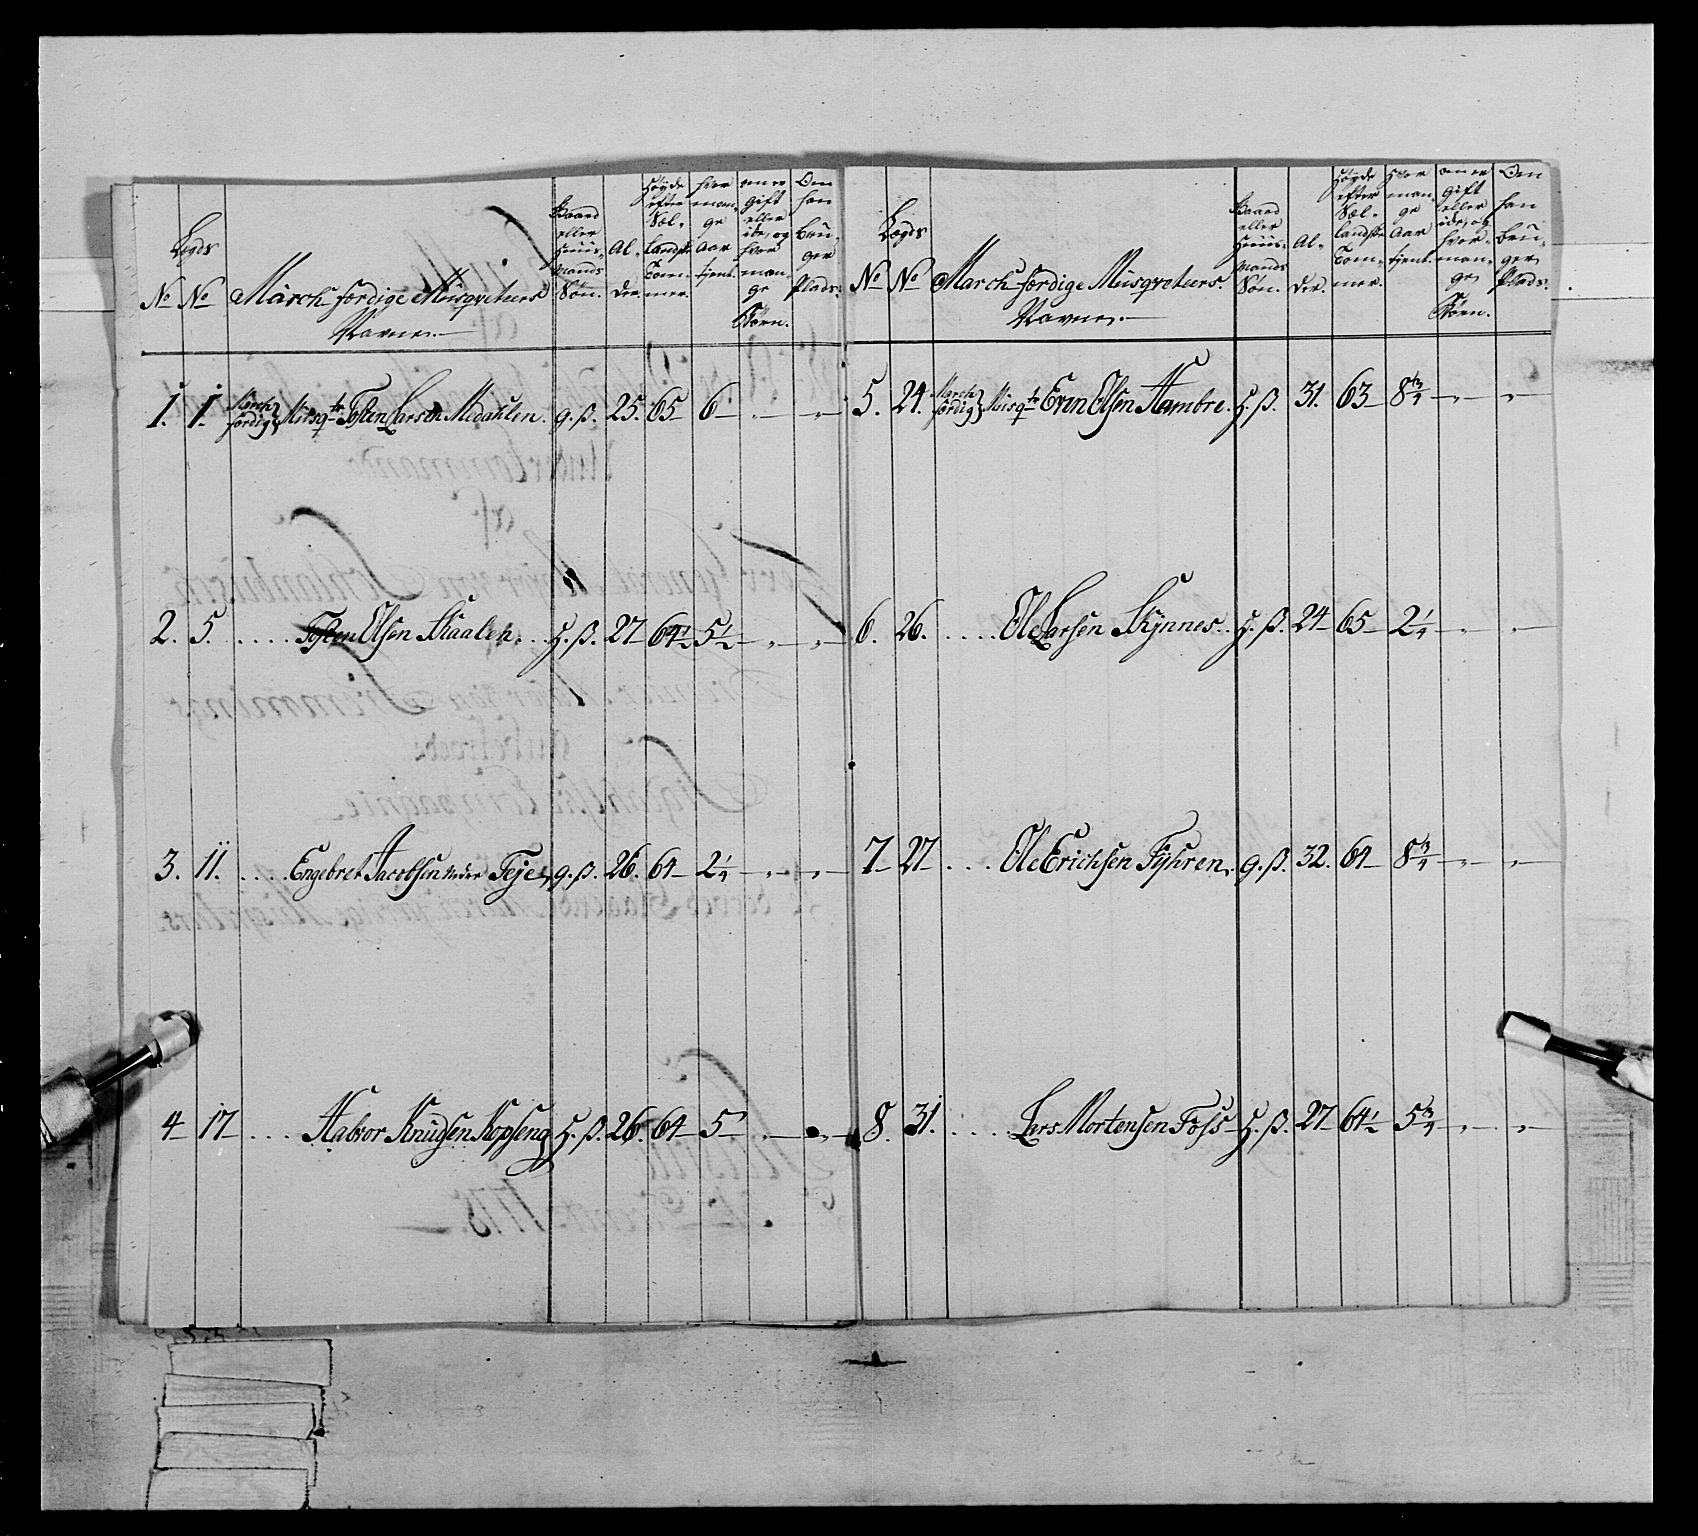 No
Legds No
March færdige Musqveteers Navne.
Gaard eller Huus-mands Søn.
Al-der.
Høyde efter Sæl-landske Tom-mer.
hvor man-ge Aar tient.
om er Gift eller ide, og hvor man-ge Børn.
Om han bru-ger Plads.
1. 1. March færdig Musqtr Tosten Larsen Medahlen. g. ß. 25. 65 6 — " — " —
2. 5. .... Tosten Olsen Skaalen. .. H. ß. 27 64½ 5½ — " — " —
3. 11. .... Engebret Jacobsen neder Teje, g. ß. 26. 64 — 2¼ — " — " —
4 — 17 — .... Halvor Knudsen Kopseng H. ß. 26. 64 — 5 — " — " —
No
Legds No
March færdige Musqveteers. Navne. —
Gaard eller Huus-mands Søn.
Al-der.
Høyde efter Sæl-landske Tom-mer.
Hvor man-ge Aar tient.
om er Gift eller ide, og hvor-man-ge Børn.
Om han bru-ger Plads.
5. 24. March færdig Musqtr Even Olsen Hambre. H. ß. 31. 63 — 8¾ — " — " —
6. 26. .... Ole Larsen Skynnes. .. H. ß. 24 — 65 — 2¼ — " — " —
7 — 27 .... Ole Erichsen Fyhren. g. ß. 32. 64 — 8¾ — " — " —
8. 31. .... Lars Mortensen Foss — H. ß. 27 — 64½ 5¾ — " — " —